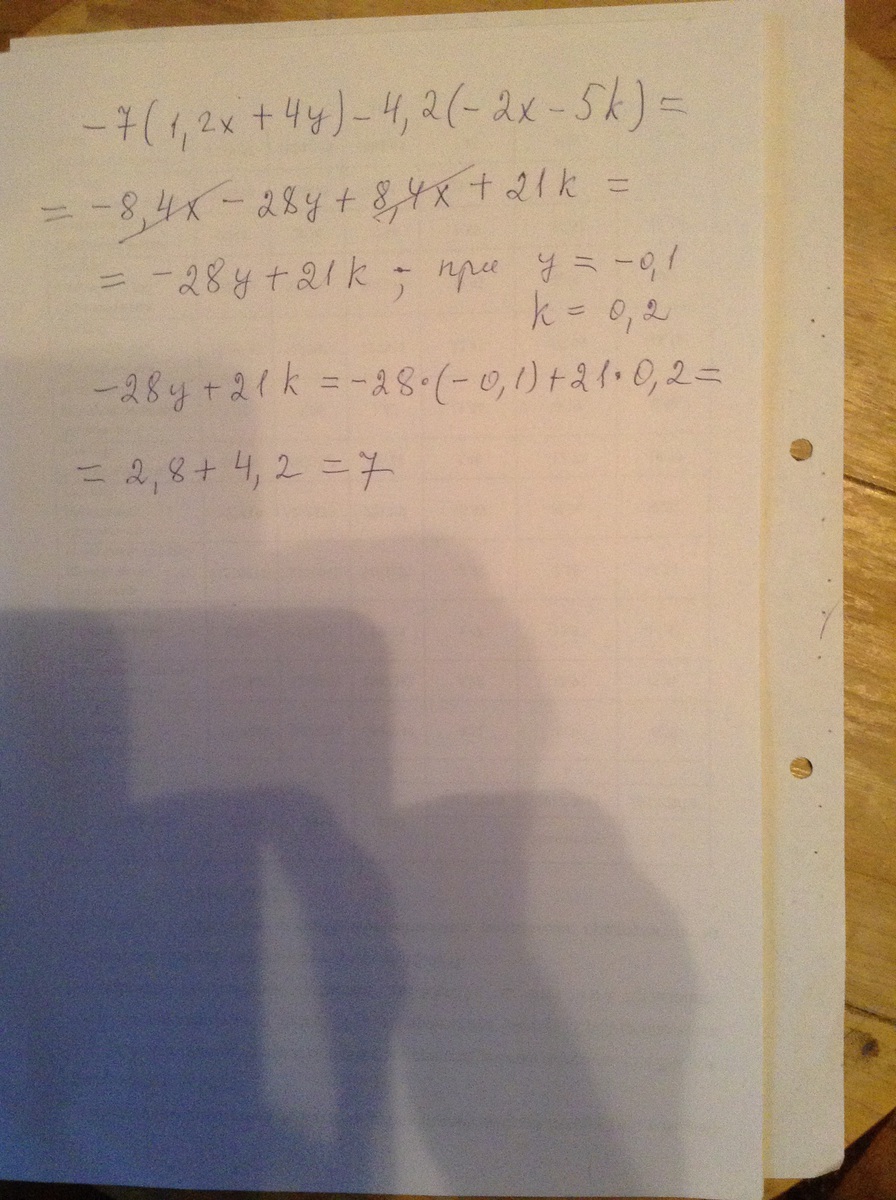 -7(1,2x + 4y) - 4,2(-2x - 5k) =
= -8,4x - 28y + 8,4x + 21k =
= -28y + 21k ; при y = -0,1
k = 0,2
-28y + 21k = -28·(-0,1) + 21·0,2 =
= 2,8 + 4,2 = 7